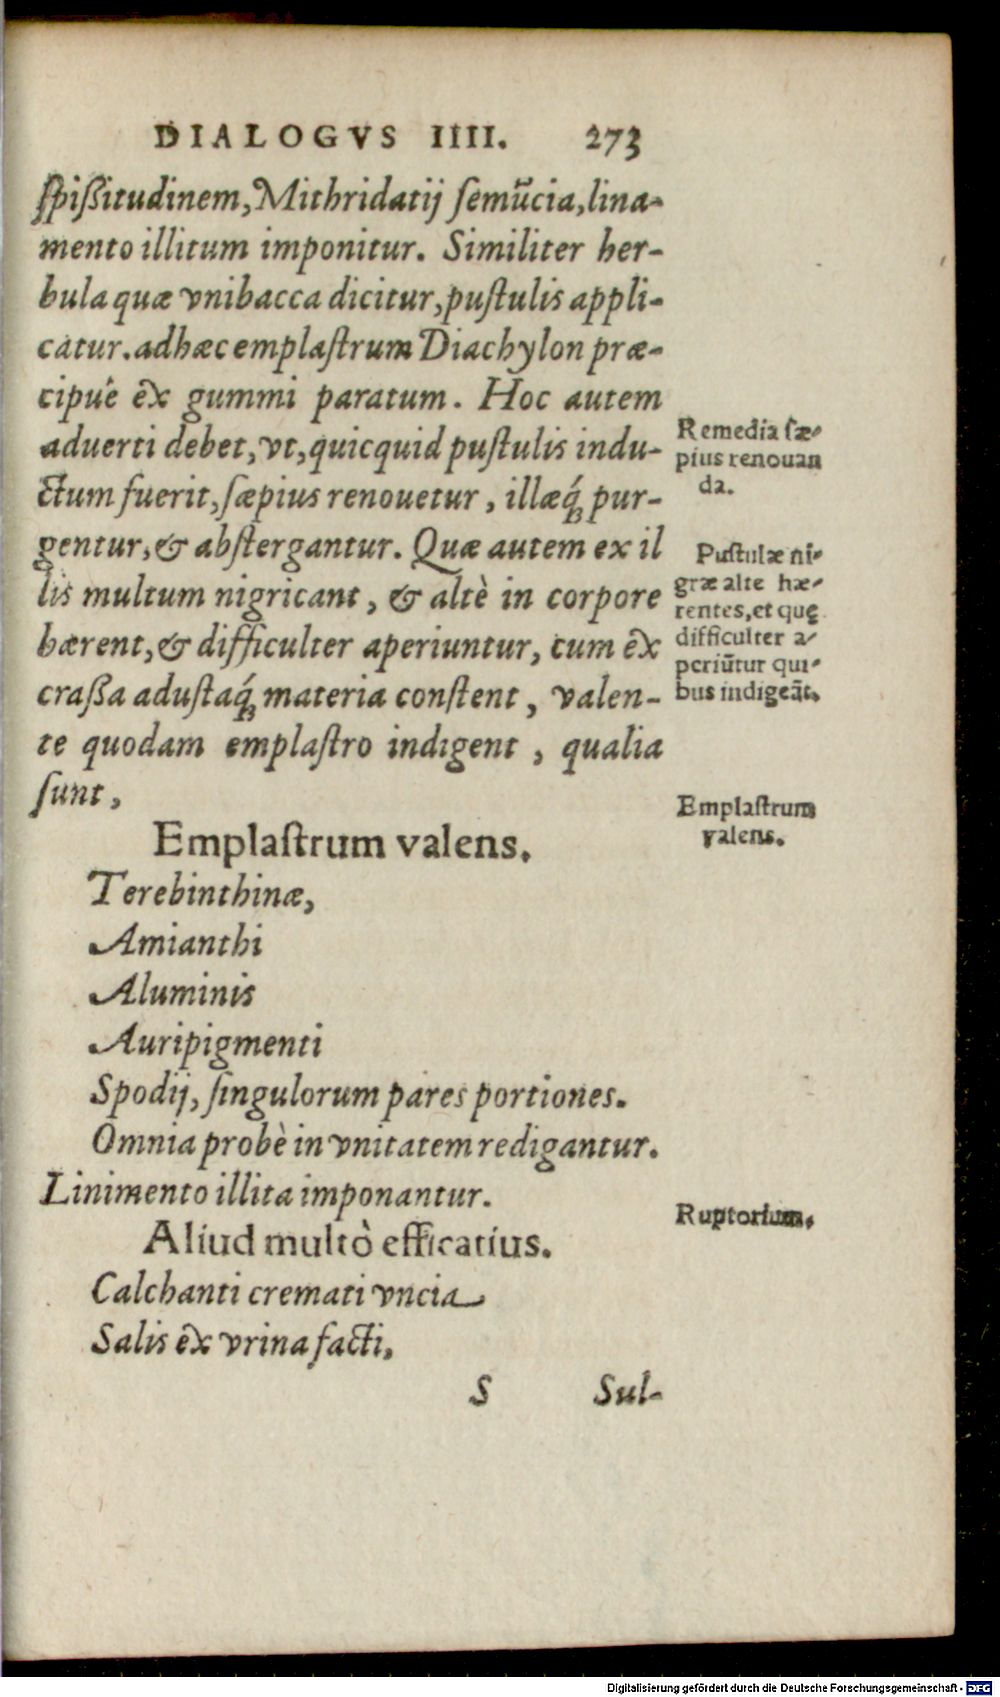 DIALOGVS IIII. 273
ſpißitudinem, Mithridatij ſemūcia, lina-
mento illitum imponitur. Similiter her-
bula quæ vnibacca dicitur, puſtulis appli-
catur. adhæc emplaſtrum Diachylon præ-
cipuè ex gummi paratum. Hoc autem
aduerti debet, vt, quicquid puſtulis indu-
ctum fuerit, ſæpius renouetur, illæq́; pur-
gentur, & abſtergantur. Quæ autem ex il
lis multum nigricant, & altè in corpore
hærent, & difficulter aperiuntur, cum ex
craßa aduſtaq́; materia conſtent, valen-
te quodam emplaſtro indigent, qualia
ſunt,
Remedia ſæ-
pius renouan
da.
Puſtulæ ni-
græ alte hæ-
rentes, et quę
difficulter a-
periũtur qui-
bus indigeãt.
Emplaſtrum
valens.
Emplaſtrum valens.
Terebinthinæ,
Amianthi
Aluminis
Auripigmenti
Spodij, ſingulorum pares portiones.
Omnia probè in vnitatem redigantur.
Linimento illita imponantur.
Ruptorium.
Aliud multò efficatius.
Calchanti cremati vncia
Salis ex vrina facti,
S Sul-
Digitalisierung gefördert durch die Deutsche Forschungsgemeinschaft - DFG